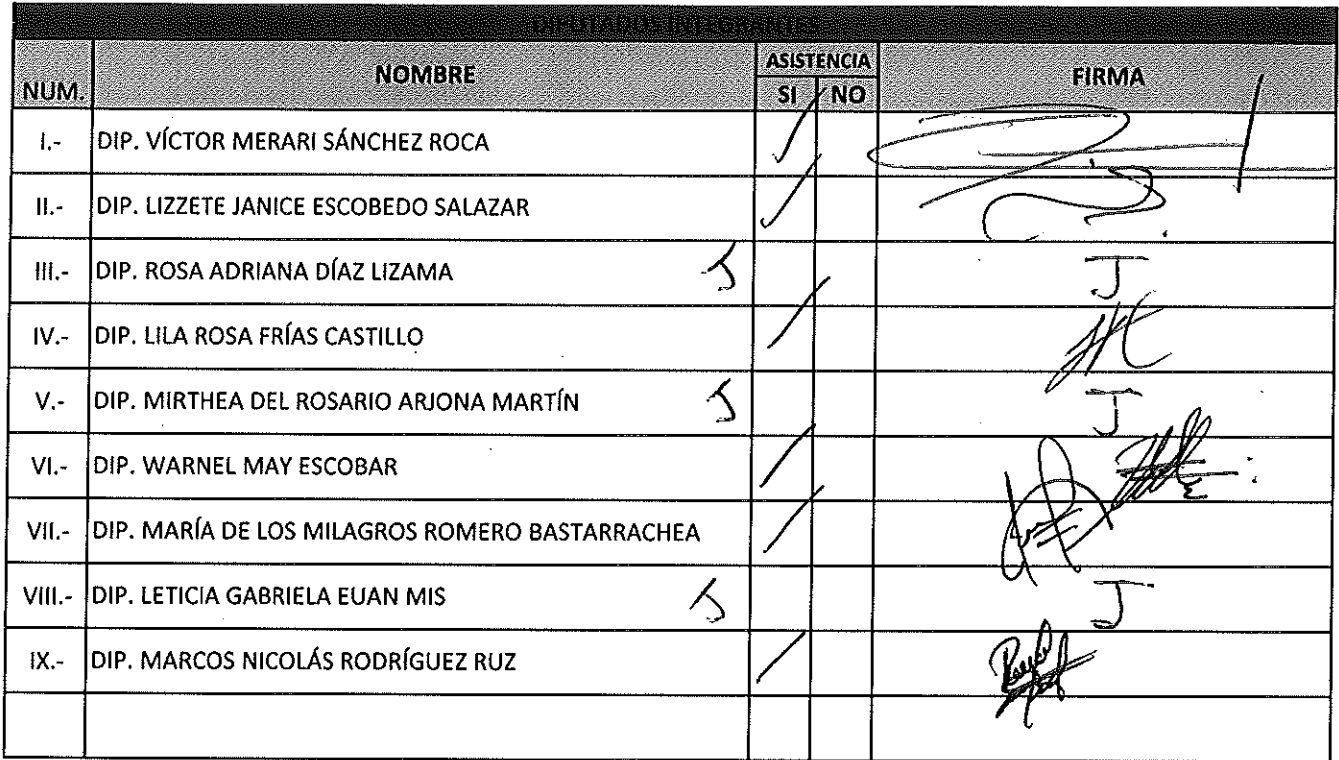 DIPUTADOS INTEGRANTES
NUM. NOMBRE ASISTENCIA FIRMA
SI NO
I.- DIP. VÍCTOR MERARI SÁNCHEZ ROCA
II.- DIP. LIZZETE JANICE ESCOBEDO SALAZAR
III.- DIP. ROSA ADRIANA DÍAZ LIZAMA J J
IV.- DIP. LILA ROSA FRÍAS CASTILLO
V.- DIP. MIRTHEA DEL ROSARIO ARJONA MARTÍN J J
VI.- DIP. WARNEL MAY ESCOBAR
VII.- DIP. MARÍA DE LOS MILAGROS ROMERO BASTARRACHEA
VIII.- DIP. LETICIA GABRIELA EUAN MIS J J
IX.- DIP. MARCOS NICOLÁS RODRÍGUEZ RUZ